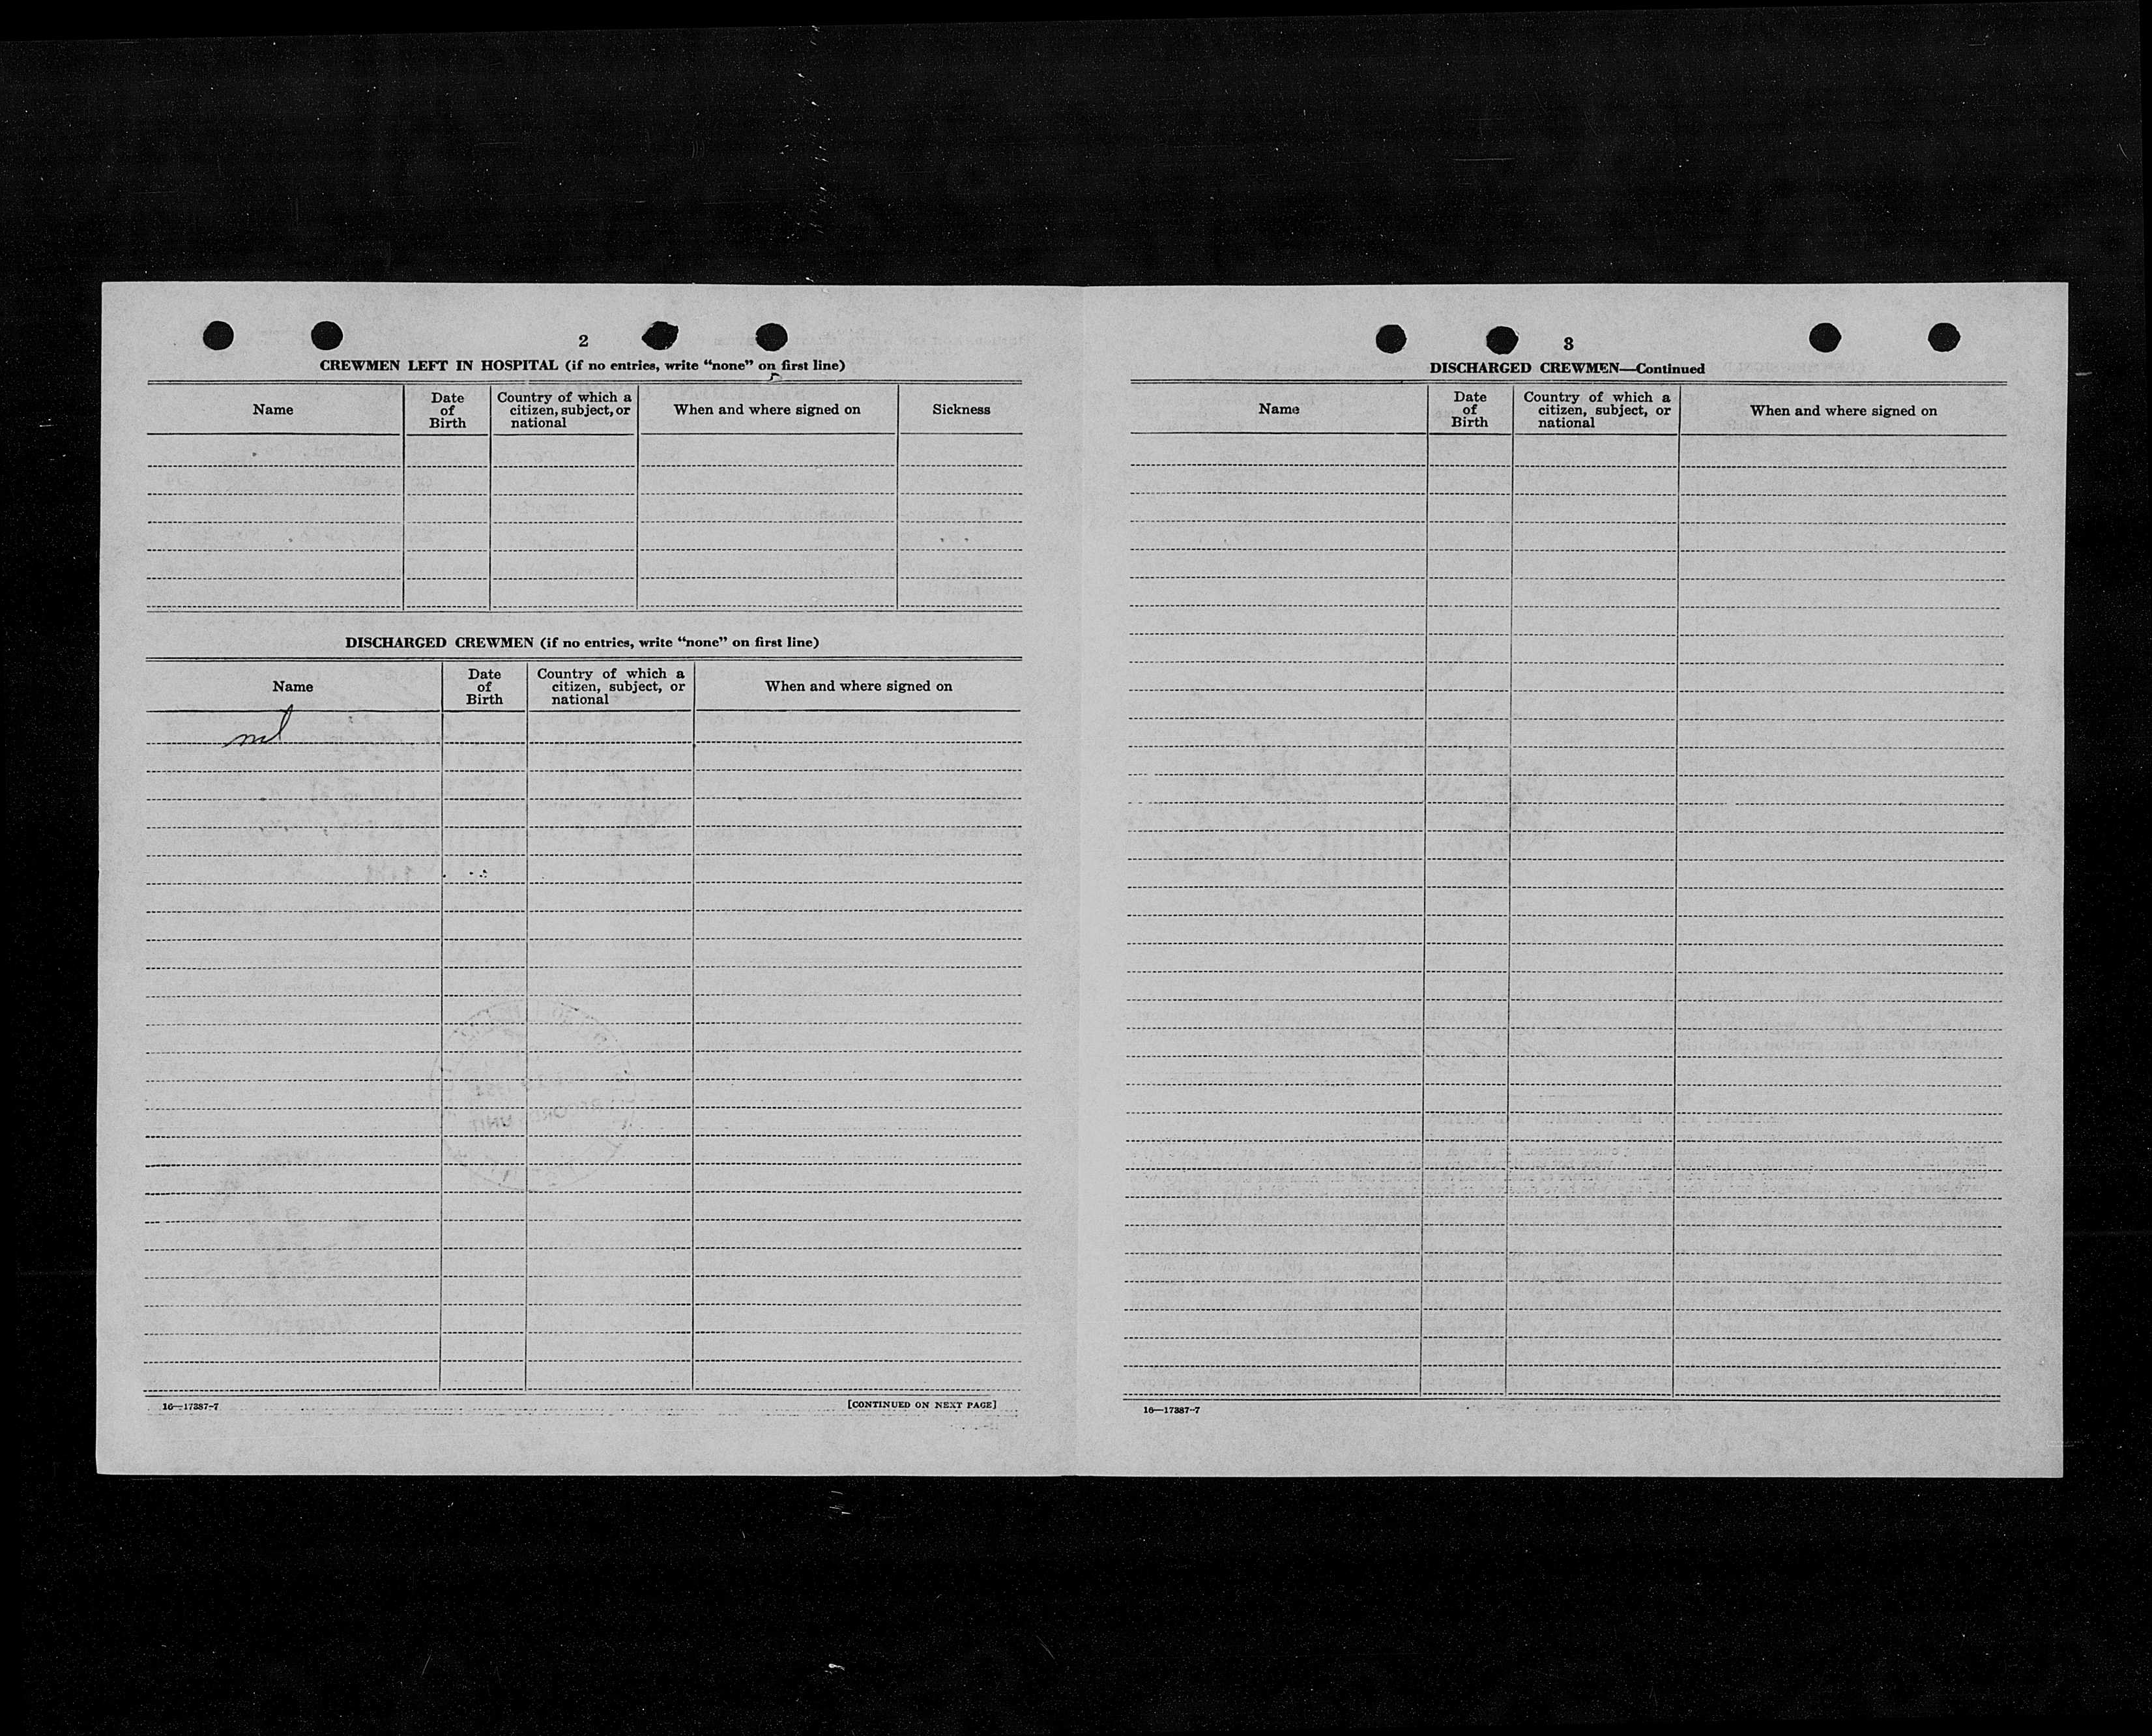 2
CREWMEN LEFT IN HOSPITAL (if no entries, write “none” on first line)
Name
Date of Birth
Country of which a citizen, subject, or national
When and where signed on
Sickness
DISCHARGED CREWMEN (if no entries, write “none” on first line)
Name
Date of Birth
Country of which a citizen, subject, or national
When and where signed on
nil
16—17387-7
[CONTINUED ON NEXT PAGE]
3
DISCHARGED CREWMEN—Continued
Name
Date of Birth
Country of which a citizen, subject, or national
When and where signed on
16—17387-7